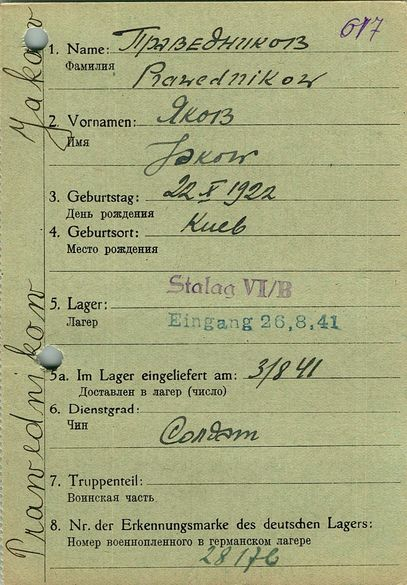 617
1. Name: Праведников
Фамилия
Prawednikow
2. Vornamen: Яков
Имя
Jakow
3. Geburtstag: 22 X 1922
День рождения
4. Geburtsort: Киев
Место рождения
5. Lager: Stalag VI/B
Лагер Eingang 26,8,41
5a. Im Lager eingeliefert am: 3/8 41
Доставлен в лагер (число)
6. Dienstgrad:
Чин Солдат
7. Truppenteil:
Воинская часть
8. Nr. der Erkennungsmarke des deutschen Lagers:
Номер военнопленного в германском лагере
28176
Prawednikow Jakow